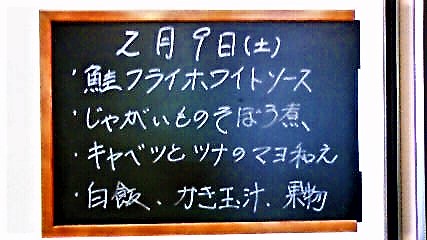 2月9日(土)
・鮭フライホワイトソース
・じゃがいものそぼろ煮、
・キャベツとツナのマヨ和え
・白飯、かき玉汁、果物